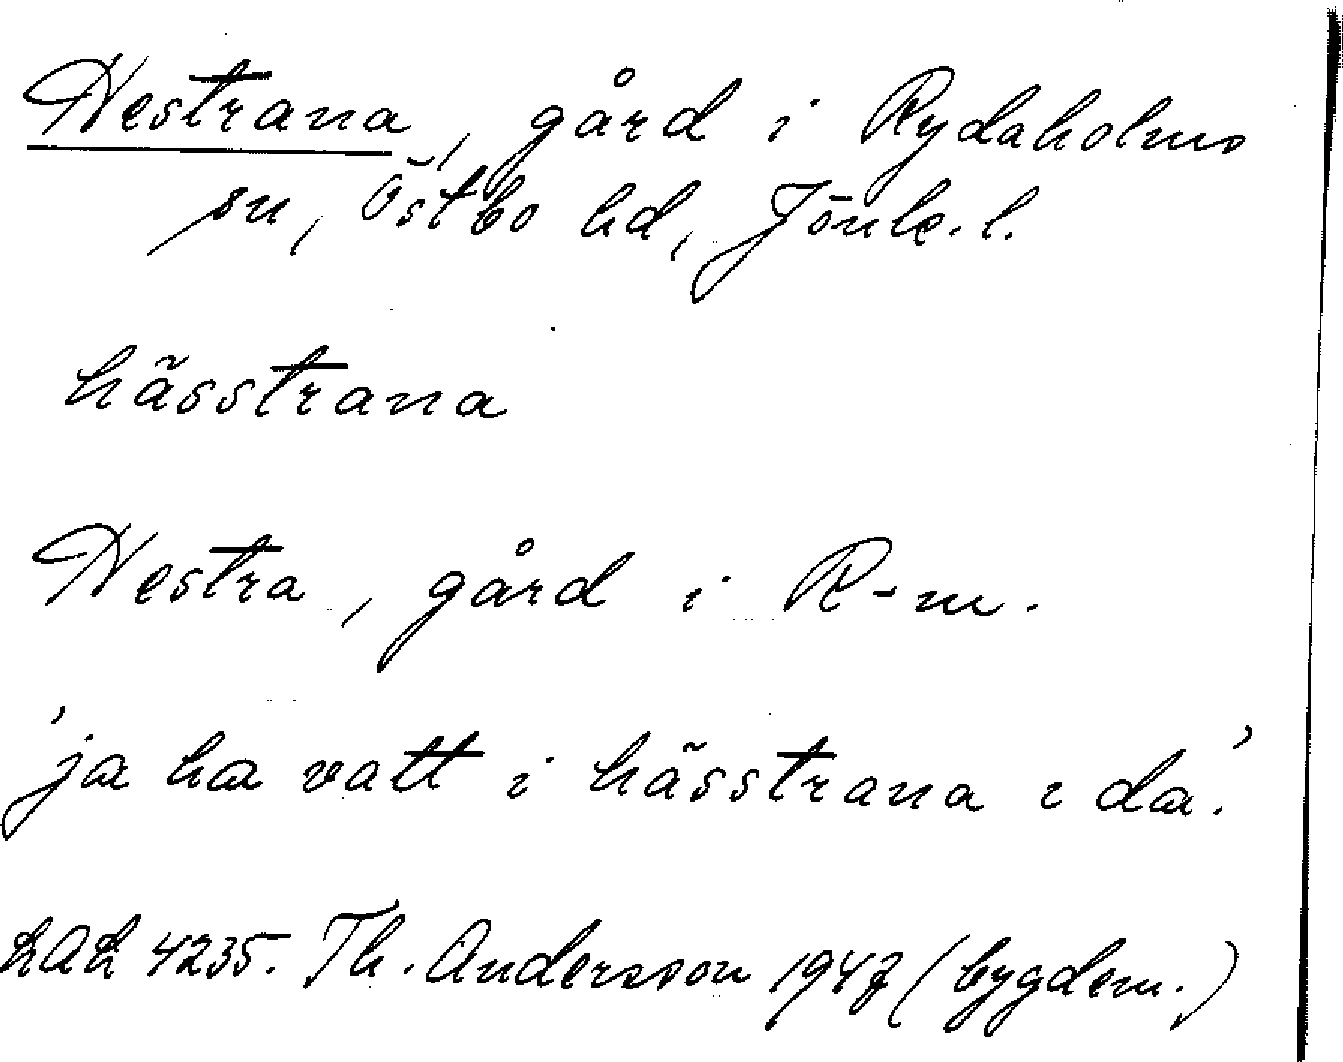 Hestrana, gård i Rydaholms
sn, Östbo hd, Jönk. l.
hässtrana
Hestra, gård i R-m.
'ja ha vatt i hässtrana i da.'
LAL 4235. Th. Andersson 1947 (bygdem.)